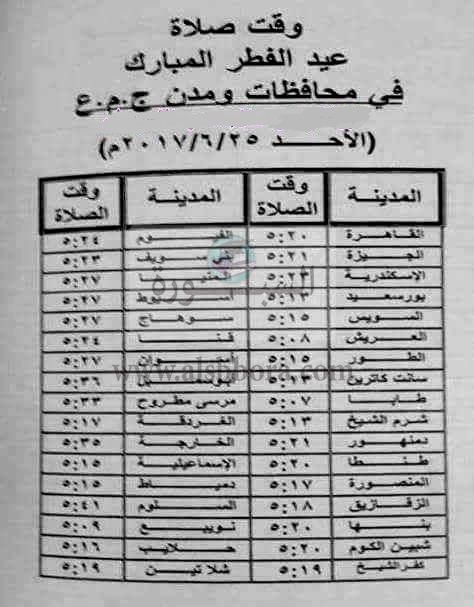 وقت صلاة
عيد الفطر المبارك
في محافظات ومدن ج.م.ع
(الأحد ٢٠١٧/٦/٢٥م)
المدينة وقت الصلاة المدينة وقت الصلاة
القاهرة ٥:٢٠ الفيوم ٥:٢٤
الجيزة ٥:٢١ بني سويف ٥:٢٣
الاسكندرية ٥:٢٣ المنيا ٥:٢٧
بورسعيد ٥:١٣ أسيوط ٥:٢٧
السويس ٥:١٥ سوهاج ٥:٢٧
العريش ٥:٠٨ قنا ٥:٢٤
الطور ٥:١٥ أسوان ٥:٢٧
سانت كاترين ٥:١٣ ٥:٣٦
طابا ٥:٠٧ مرسى مطروح ٥:٣٣
شرم الشيخ ٥:١٣ الغردقة ٥:١٧
دمنهور ٥:٢١ الخارجة ٥:٣٥
طنطا ٥:٢٠ الإسماعيلية ٥:١٥
المنصورة ٥:١٧ دمياط ٥:١٥
الزقازيق ٥:١٨ السلوم ٥:٤١
بنها ٥:٢٠ نويبع ٥:٠٩
شبين الكوم ٥:٢٠ حلايب ٥:١٦
كفر الشيخ ٥:١٩ شلاتين ٥:١٩
www.alshbora.com